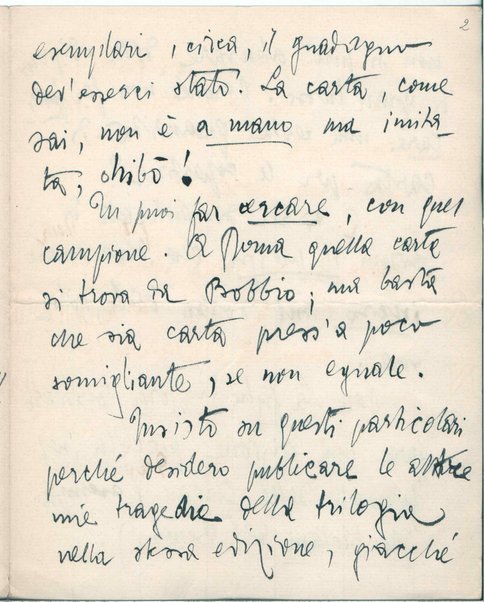 2
esemplari, circa, il guadagno
dev'esserci stato. La carta, come
sai, non è a mano ma imita
ta, ohibò!
Tu puoi far cercare, con quel
campione. A Roma quella carta
si trova da Bobbio; ma basta
che sia carta press'a poco
somigliante, se non eguale.
Insisto su questi particolari
perché desidero publicare le altre
mie tragedie della trilogia
nella stessa edizione, giacché